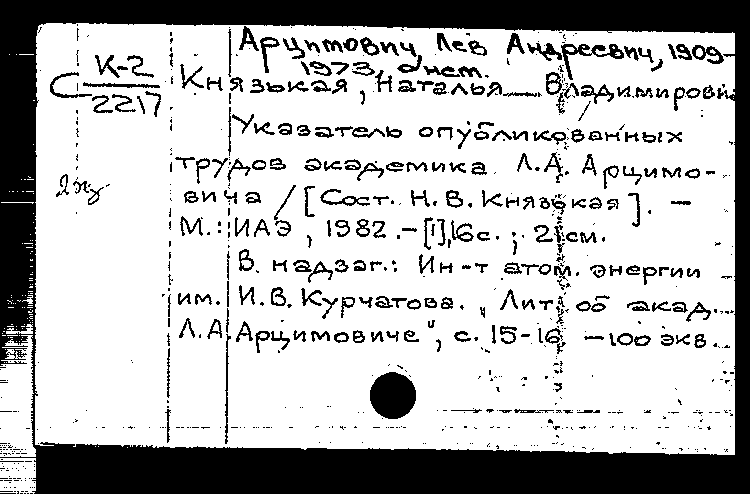 Арцимович, Лев Андреевич, 1909-
1973, о нем.
С К-2
2217
Князькая, Наталья Владимировна
Указатель опубликованных
трудов академика Л.А. Арцимо-
вича / [Сост. Н.В. Князькая]. —
М.: ИАЭ, 1982. - [1],16с.; 21см.
В надзаг.: Ин-т атом. энергии
им. И.В. Курчатова. „Лит. об акад.
Л.А. Арцимовиче", с. 15-16 —100 экз.
2яз